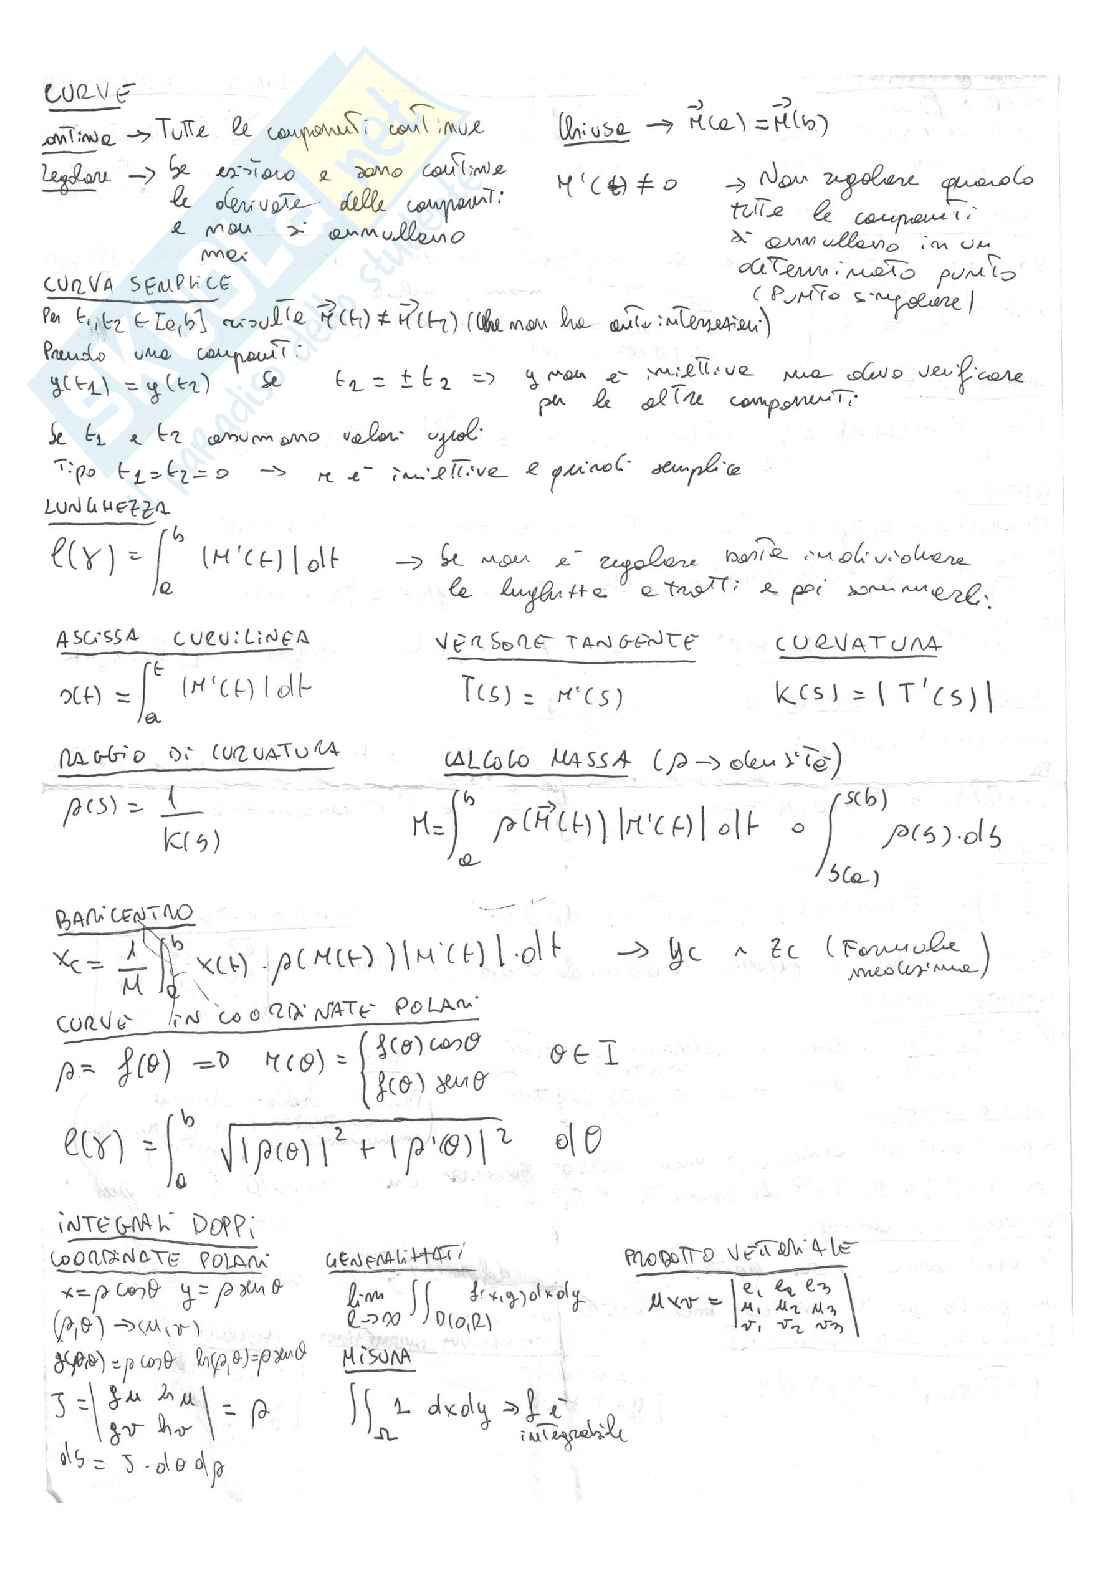 CURVE
continua → Tutte le componenti continue
Chiusa → r⃗(a) = r⃗(b)
regolare → Se esistono e sono continue
le derivate delle componenti
e non si annullano
mai
r'(t) ≠ 0 → Non regolare quando
tutte le componenti
si annullano in un
determinato punto
(PUNTO singolare)
CURVA SEMPLICE
Per t1, t2 ∈ [a,b] risulta r⃗(t1) ≠ r⃗(t2) (che non ha auto intersezioni)
Prendo una componenti:
y(t1) = y(t2) se t1 = ± t2 => y non è iniettiva ma devo verificare
per le altre componenti
Se t1 e t2 assumono valori uguali
Tipo t1 = t2 = 0 → r è iniettiva e quindi semplice
LUNGHEZZA
l(γ) = ∫_a^b |r'(t)| dt → Se non è regolare basta individuare
le lunghezze a tratti e poi sommarli.
ASCISSA CURVILINEA
VERSORE TANGENTE
CURVATURA
s(t) = ∫_a^t |r'(t)| dt
T(s) = r'(s)
K(s) = |T'(s)|
RAGGIO DI CURVATURA
CALCOLO MASSA (ρ → densità)
ρ(s) = 1/K(s)
M = ∫_a^b ρ(r⃗(t)) |r'(t)| dt o ∫_{s(a)}^{s(b)} ρ(s)·ds
BARICENTRO
xc = 1/M ∫_a^b x(t) · ρ(r(t)) |r'(t)| · dt → yc ∧ zc (Formula
medesima)
CURVE IN COORDINATE POLARI
ρ = f(θ) => r(θ) = { f(θ) cosθ
f(θ) senθ
θ ∈ I
l(γ) = ∫_a^b √(|ρ(θ)|² + |ρ'(θ)|²) dθ
INTEGRALI DOPPI
COORDINATE POLARI
x = ρ cosθ y = ρ senθ
(ρ,θ) → (u,v)
g(ρ,θ) = ρ cosθ h(ρ,θ) = ρ senθ
J = |gu hu
gv hv| = ρ
dS = J · dθ dρ
GENERALIZZATI
lim R→∞ ∬_{D(0,R)} f(x,y) dxdy
MISURA
∬_Ω 1 dxdy → f è
integrabile
PRODOTTO VETTORIALE
u×v = |e1 e2 e3
u1 u2 u3
v1 v2 v3|
SKUOLA.net
il paradiso dello studente